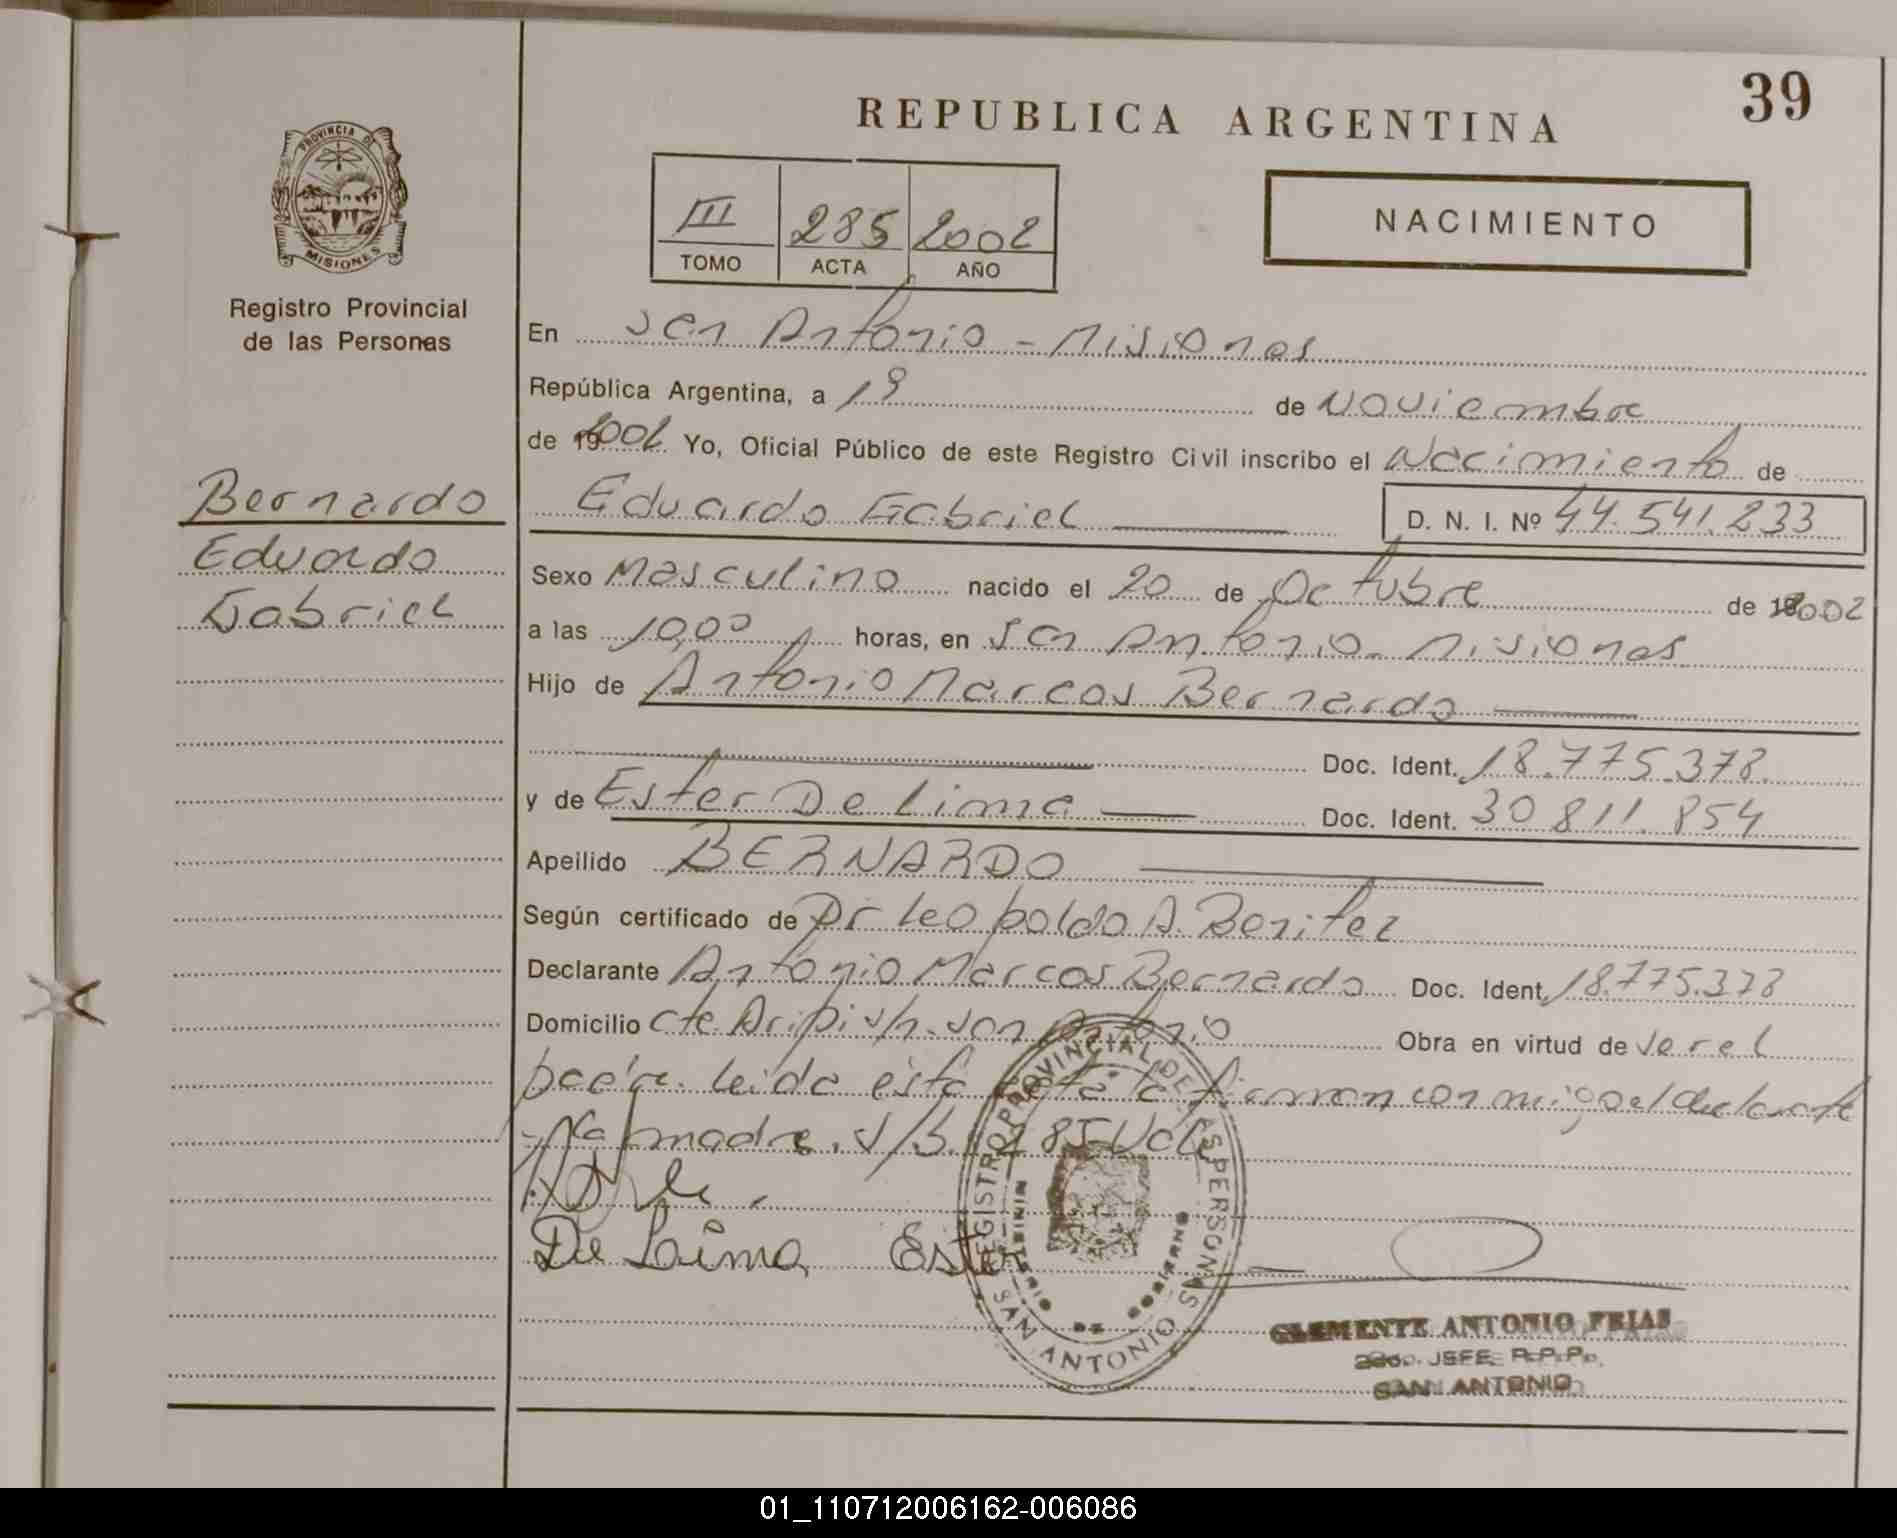 39
REPUBLICA ARGENTINA
PROVINCIA DE
MISIONES
Registro Provincial
de las Personas
III 285 2002
TOMO ACTA AÑO
NACIMIENTO
En San Antonio - Misiones
República Argentina, a 19 de Noviembre
de 2002 Yo, Oficial Público de este Registro Civil inscribo el Nacimiento de
Bernardo
Eduardo
Gabriel
Eduardo Gabriel D. N. I. Nº 44.541.233
Sexo Masculino nacido el 20 de Octubre de 2002
a las 10,00 horas, en San Antonio - Misiones
Hijo de Antonio Marcos Bernardo
Doc. Ident. 18.775.378
y de Ester De Lima Doc. Ident. 30.811.854
Apellido BERNARDO
Según certificado de Dr Leopoldo A. Benitez
Declarante Antonio Marcos Bernardo Doc. Ident. 18.775.378
Domicilio Cte. s/n. San Antonio Obra en virtud de ser el
padre. leida esta acta la firman conmigo el declarante
y la madre. S/B. 285 Vale
De Lima Ester
REGISTRO PROVINCIAL DE LAS PERSONAS
SAN ANTONIO
CLEMENTE ANTONIO FRIAS
JEFE R.P.P.
SAN ANTONIO
01_110712006162-006086